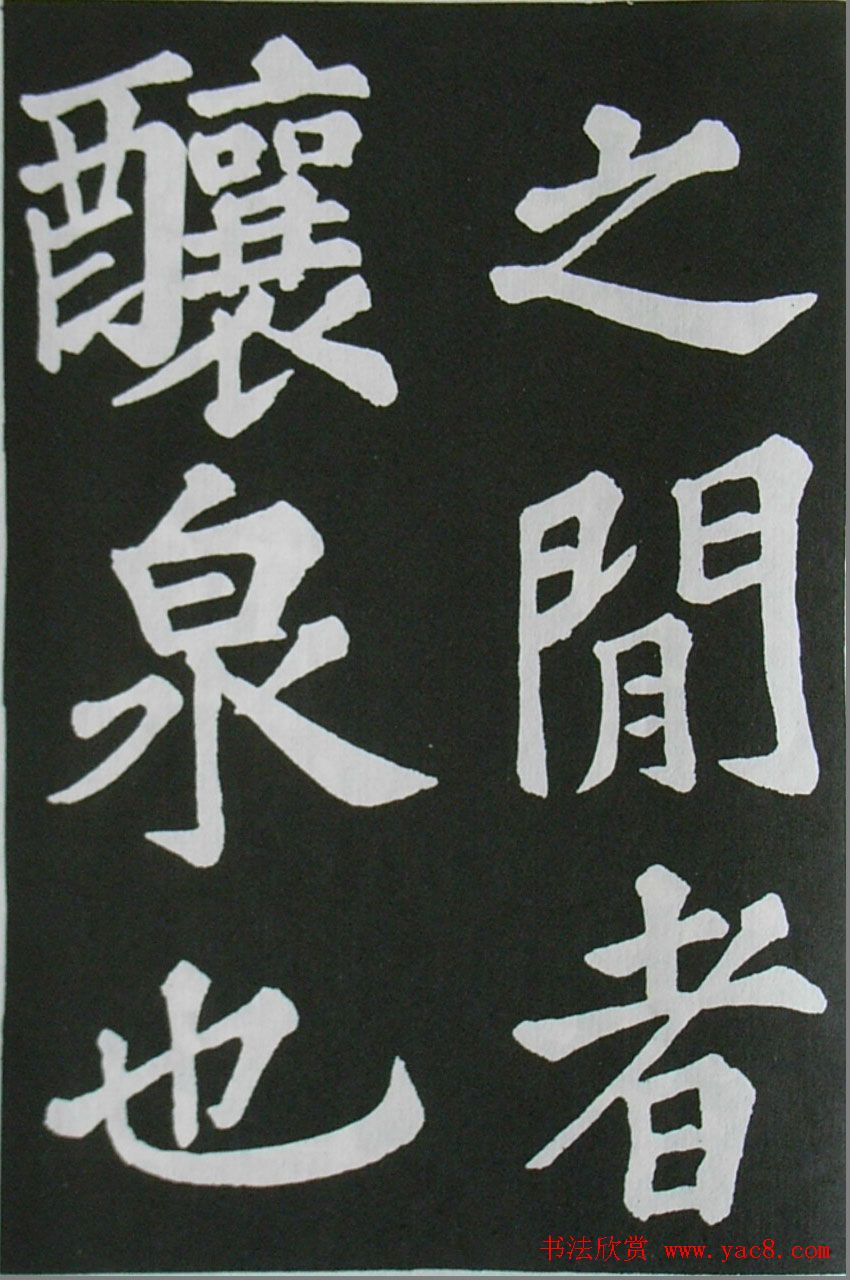 之閒者
釀泉也
书法欣赏 www.yac8.com